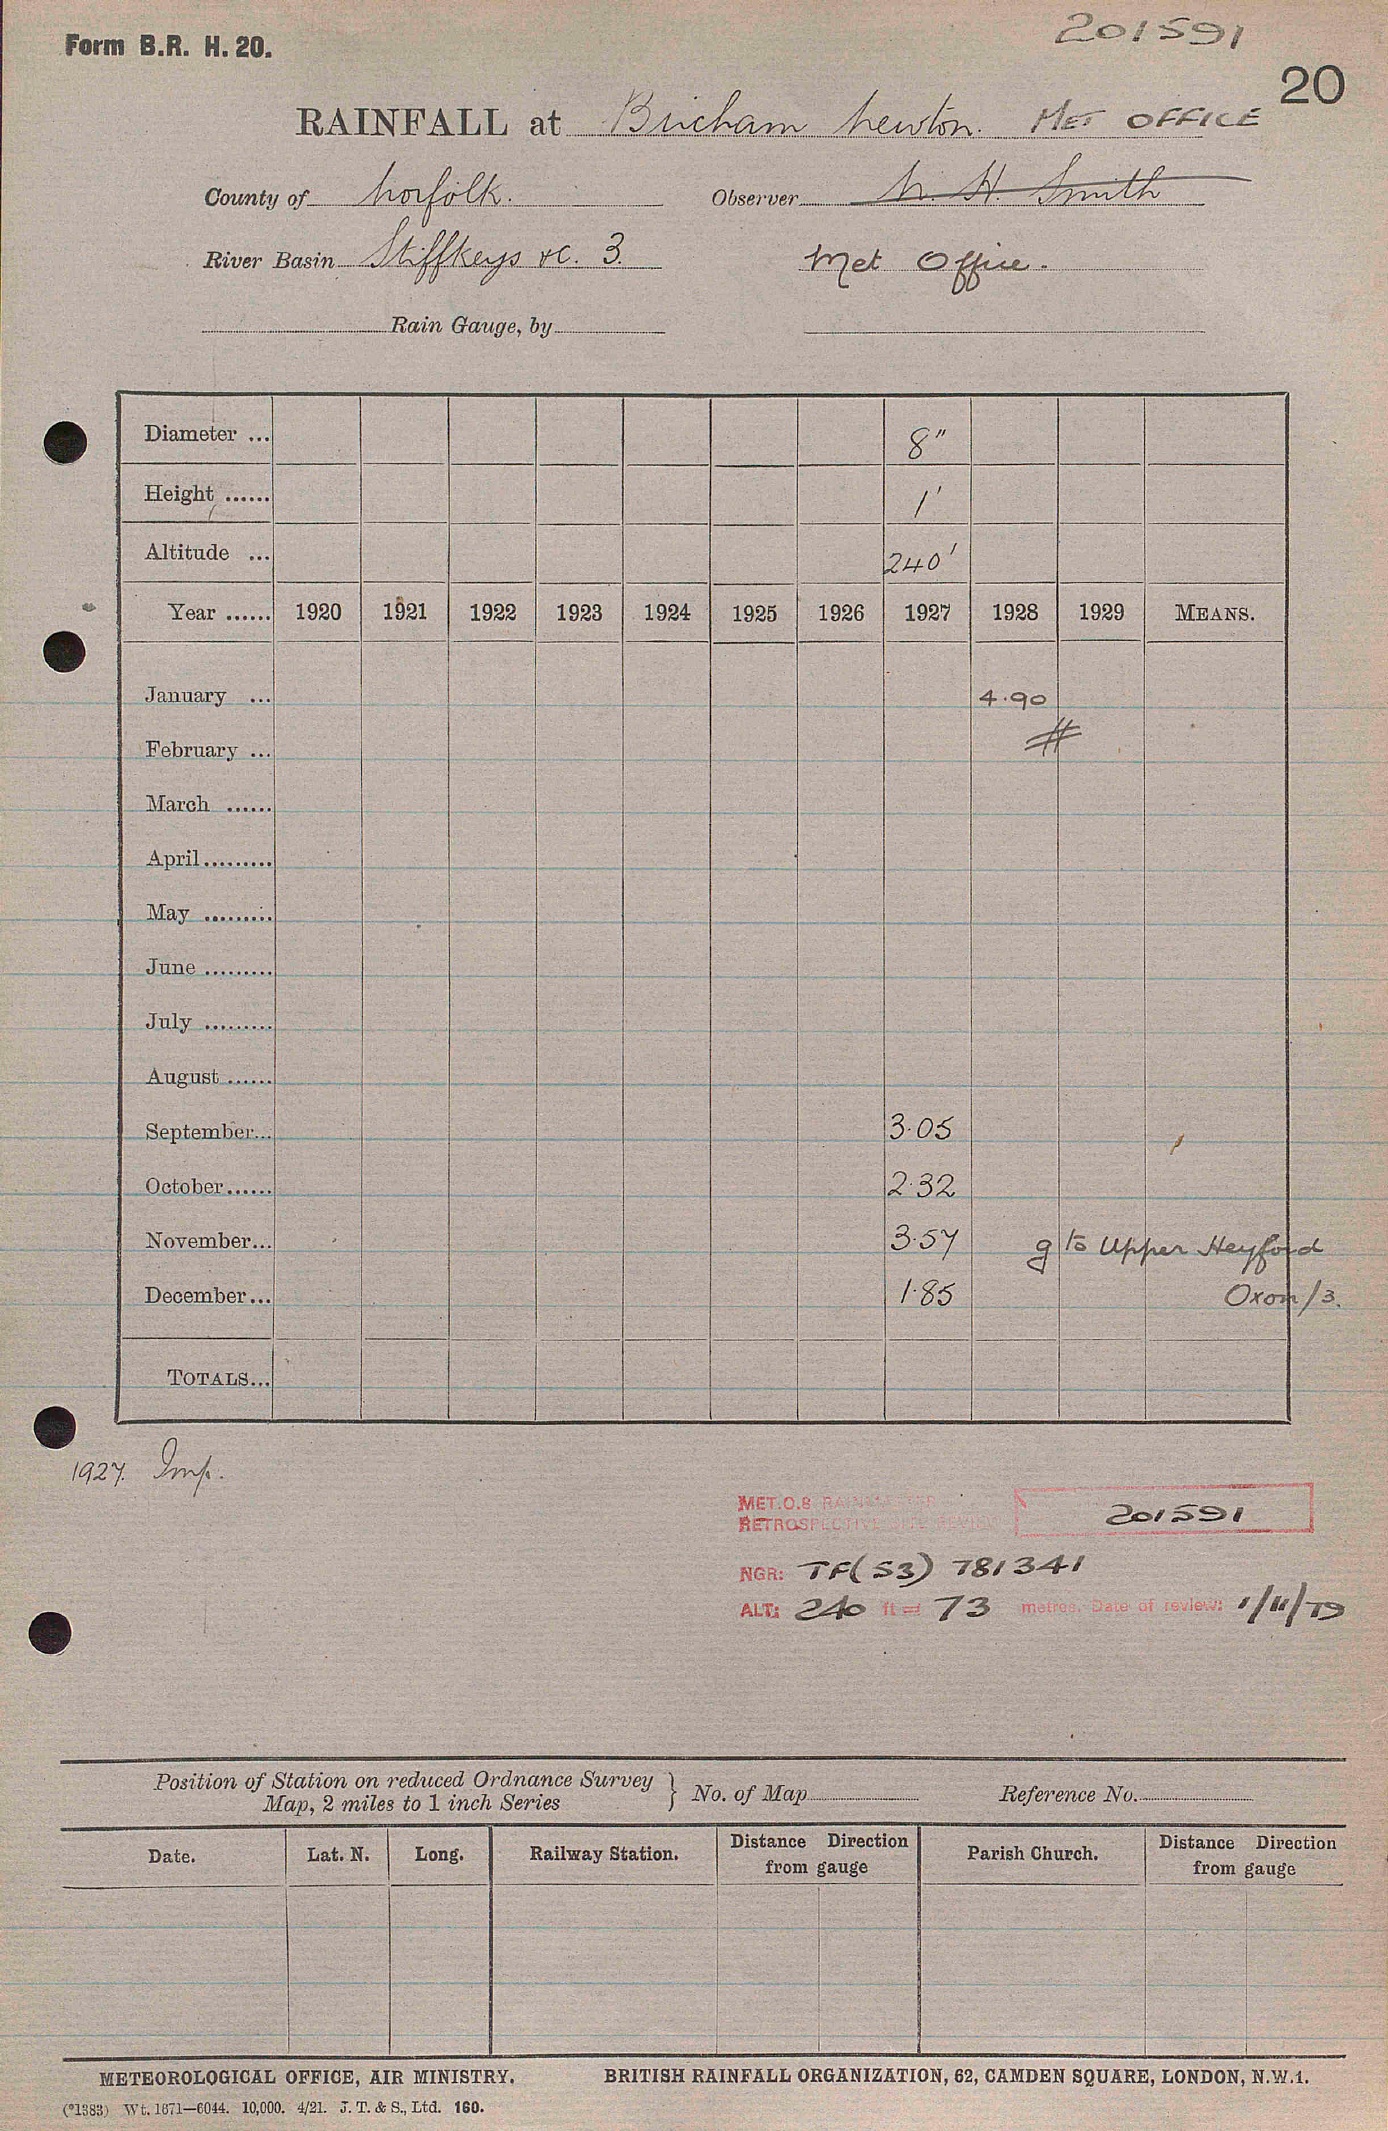 Form B.R. H. 20.
201591
20
RAINFALL at Bircham Newton. MET OFFICE
County of Norfolk. Observer N. H. Smith
River Basin Stiffkeys &c. 3. Met Office.
Rain Gauge, by
Diameter ... 8"
Height ...... 1'
Altitude ... 240'
Year ...... 1920 1921 1922 1923 1924 1925 1926 1927 1928 1929 MEANS.
January ... 4.90
February ...
March ......
April.........
May .........
June .........
July .........
August ......
September... 3.05
October...... 2.32
November... 3.57 g to Upper Heyford
December... 1.85 Oxon/3.
TOTALS...
1927. Imp.
MET.O.8 RAINMASTER
RETROSPECTIVE SITE REVIEW 201591
NGR: TF(53) 781341
ALT: 240 ft = 73 metres. Date of review: 1/11/79
Position of Station on reduced Ordnance Survey
Map, 2 miles to 1 inch Series } No. of Map Reference No.
Date. Lat. N. Long. Railway Station. Distance Direction from gauge Parish Church. Distance Direction from gauge
METEOROLOGICAL OFFICE, AIR MINISTRY. BRITISH RAINFALL ORGANIZATION, 62, CAMDEN SQUARE, LONDON, N.W.1.
(*1383) Wt. 1871—6044. 10,000. 4/21. J. T. & S., Ltd. 160.